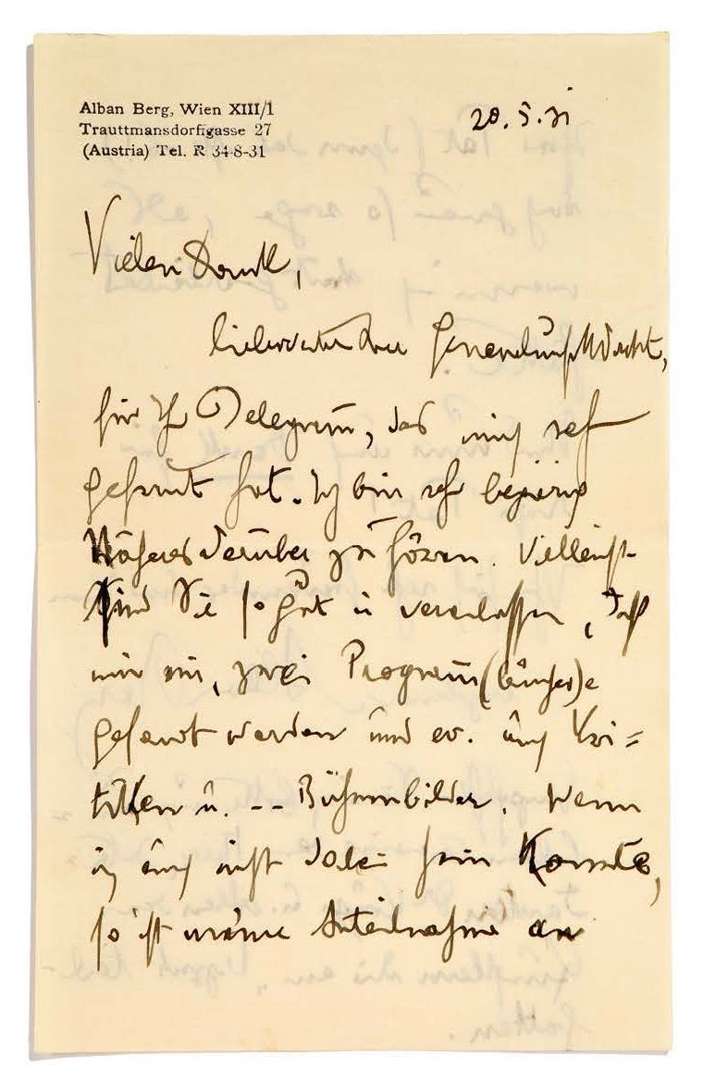 Alban Berg, Wien XIII/1
Trauttmansdorffgasse 27
(Austria) Tel. R 34-8-31
20.5.31
Vielen Dank,
lieber verehrter Generalmusik
für Ihr Telegramm, das mich sehr
gefreut hat. Ich bin sehr begierig
Näheres darüber zu hören. Vielleicht
sind Sie so gut u veranlassen, daß
mir ein, zwei Programm(bücher)e
gesandt werden und ev. auch Kri=
tiken u. -- Bühnenbilder. Wenn
ich auch nicht dabei sein konnte,
so ist meine Anteilnahme an